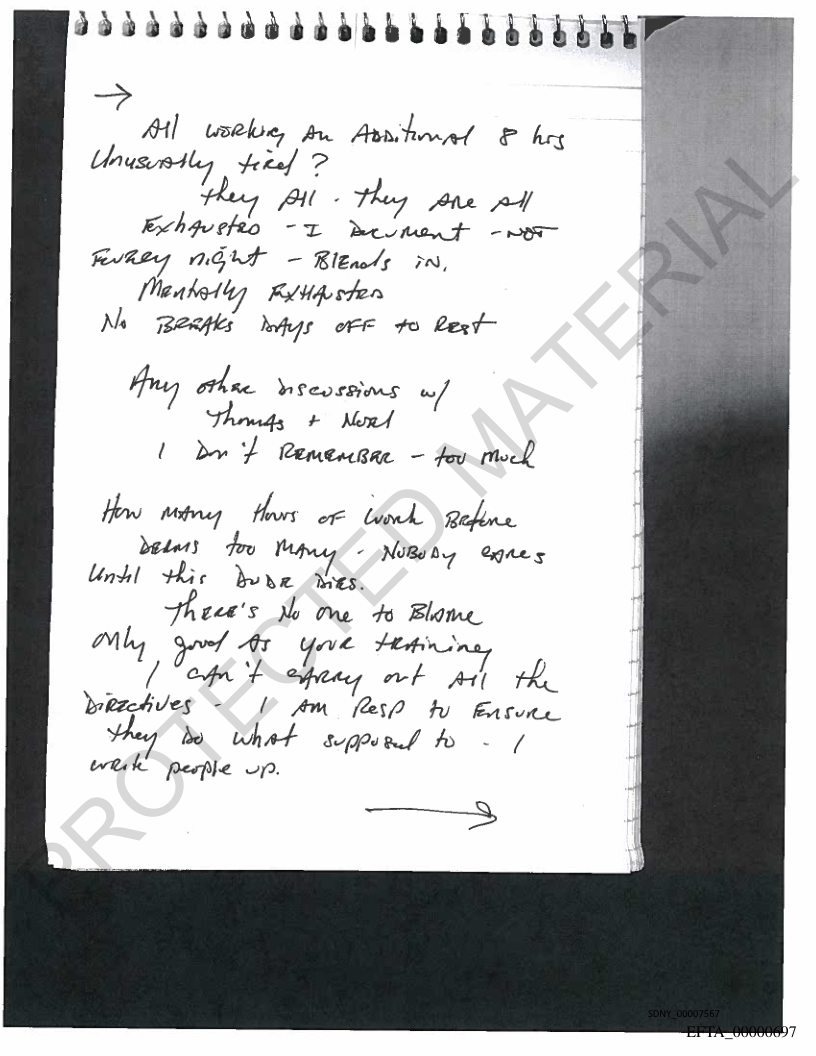 →
All working an Additional 8 hrs
Unusually tired?
they All - they are all
Exhausted - I Document - NOT
Every night - Blends in.
Mentally Exhausted
No BREAKS DAYS OFF to Rest
Any other discussions w/
Thomas + Noel
I Don't REMEMBER - too much
How many Hours of work Before
too MANY - NOBODY cares
Until this DUDE DIES.
THERE'S No one to Blame
Only good As your training
I can't carry out All the
Directives - I AM Resp to Ensure
they Do what supposed to - I
write people up.
→
PROTECTED MATERIAL
SDNY_00007567
EFTA_00000697